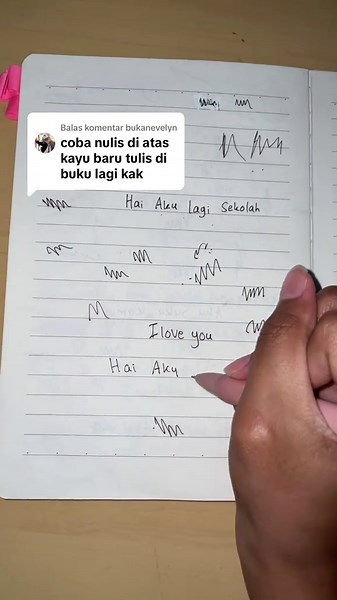 Balas komentar bukanevelyn
coba nulis di atas
kayu baru tulis di
buku lagi kak
Hai Aku lagi Sekolah
I love you
Hai Aku